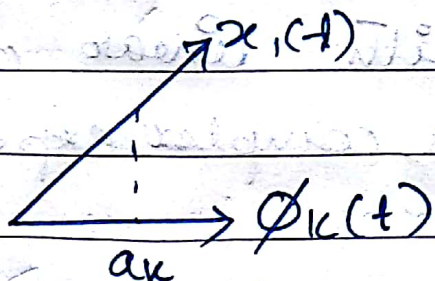 x₁(t)
ϕₖ(t)
aₖ